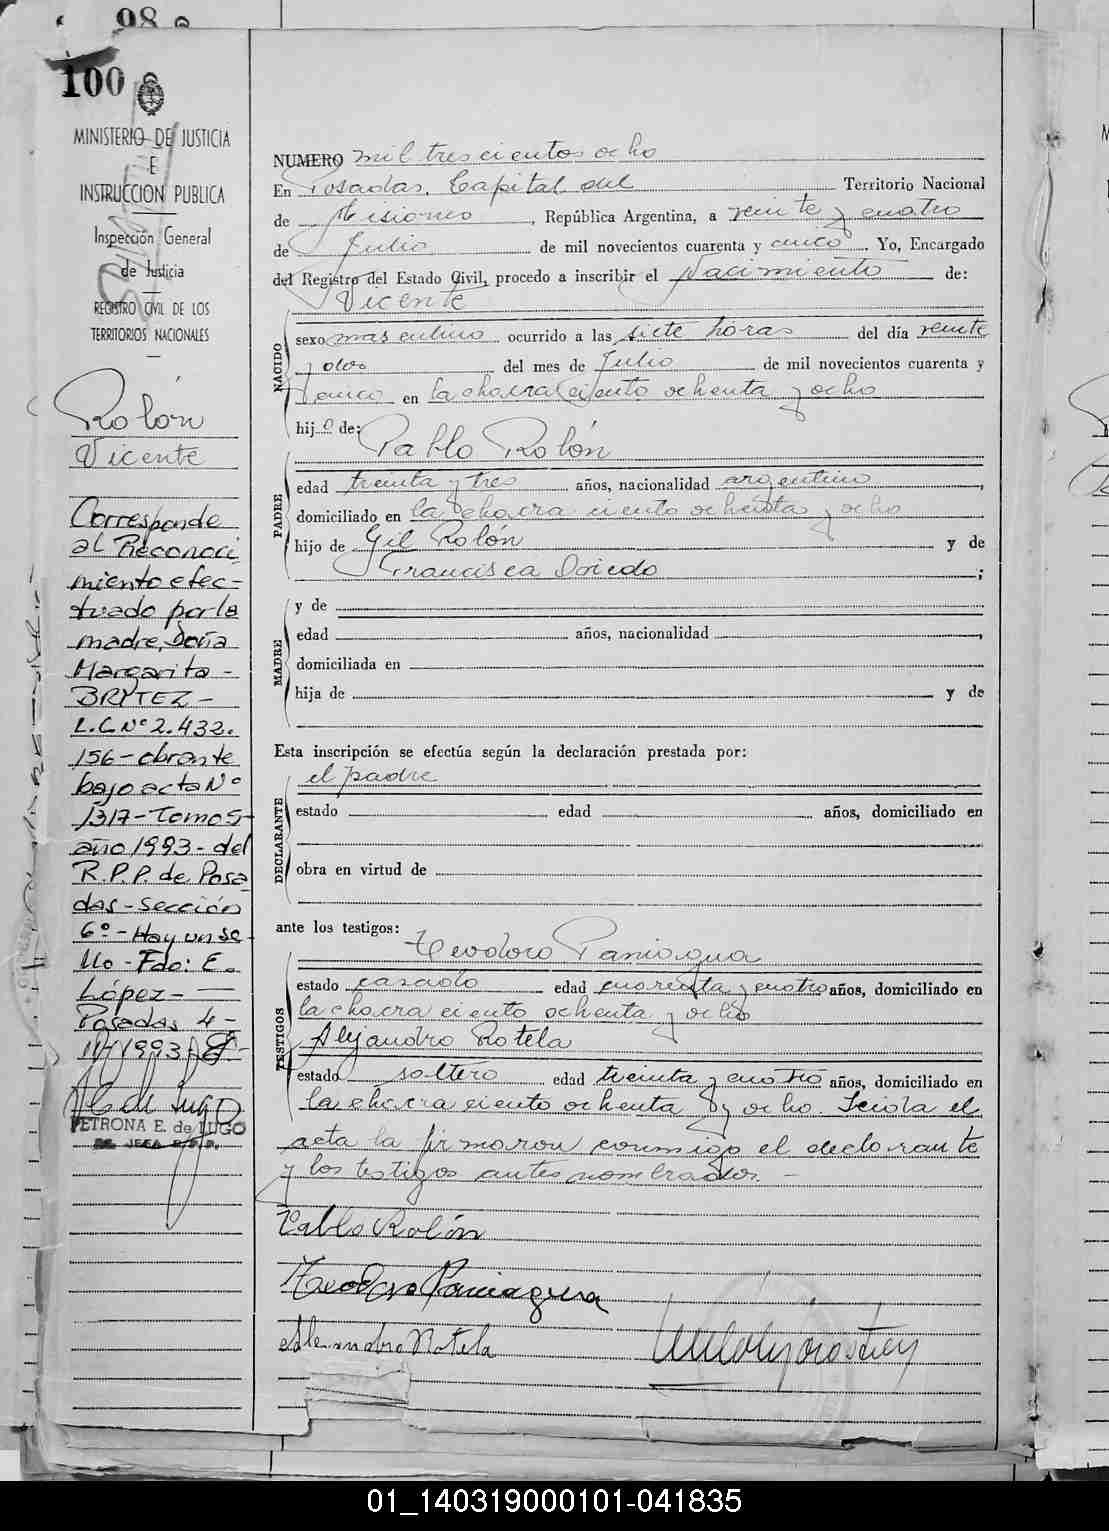 98
100
MINISTERIO DE JUSTICIA
E
INSTRUCCION PUBLICA
Inspección General
de Justicia
REGISTRO CIVIL DE LOS
TERRITORIOS NACIONALES
Rolón
Vicente
Corresponde
al Reconoci
miento efec-
tuado por la
madre, Doña
Margarita -
BRITEZ -
L.C. Nº 2.432.
156 - obrante
bajo acta Nº
1317 - Tomo 5 -
año 1993 - del
R.P.P. de Posa
das - Sección
6º - Hay un se
llo - Fdo: E.
López -
Posadas 4 -
11/1993
PETRONA E. de LUGO
NUMERO mil trescientos ocho
En Posadas, Capital del Territorio Nacional
de Misiones, República Argentina, a veinte y cuatro
de Julio de mil novecientos cuarenta y cinco. Yo, Encargado
del Registro del Estado Civil, procedo a inscribir el Nacimiento de:
NACIDO
Vicente
sexo masculino ocurrido a las siete horas del día veinte
y dos del mes de Julio de mil novecientos cuarenta y
cinco en la chacra ciento ochenta y ocho
hijo de:
PADRE
Pablo Rolón
edad treinta y tres años, nacionalidad argentino,
domiciliado en la chacra ciento ochenta y ocho
hijo de Gil Rolón y de
Francisca Oviedo;
MADRE
y de
edad años, nacionalidad,
domiciliada en
hija de y de
Esta inscripción se efectúa según la declaración prestada por:
DECLARANTE
el padre
estado edad años, domiciliado en
obra en virtud de
ante los testigos:
TESTIGOS
Teodoro Paniagua
estado casado edad cuarenta y cuatro años, domiciliado en
la chacra ciento ochenta y ocho
Alejandro Rotela
estado soltero edad treinta y cuatro años, domiciliado en
la chacra ciento ochenta y ocho. Leída el
acta la firmaron conmigo el declarante
y los testigos antes nombrados. -
Pablo Rolón
Teodoro Paniagua
Alejandro Rotela
01_140319000101-041835